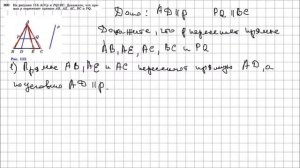 300 На рисунке 153 AD∥p и PQ∥BC. Докажите, что пря-
мая p пересекает прямые AB, AE, AC, BC и PQ.
Рис. 153
Дано: AD∥p PQ∥BC
Докажите, что p пересекает прямые
AB, AE, AC, BC и PQ
1) Прямые AB, AE и AC пересекают прямую AD, а
по условию AD∥p.